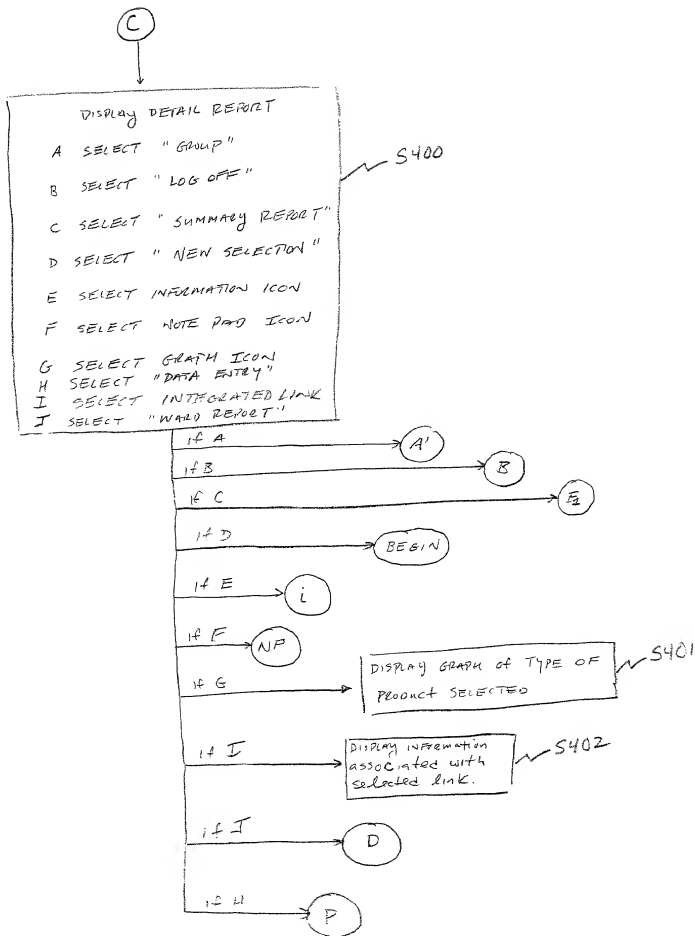 C
DISPLAY DETAIL REPORT
A SELECT "GROUP"
B SELECT "LOG OFF"
S400
C SELECT "SUMMARY REPORT"
D SELECT "NEW SELECTION"
E SELECT INFORMATION ICON
F SELECT NOTE PAD ICON
G SELECT GRAPH ICON
H SELECT "DATA ENTRY"
I SELECT INTEGRATED LINK
J SELECT "WARD REPORT"
if A
A'
if B
B
if C
if D
BEGIN
if E
i
if F
NP
if G
DISPLAY GRAPH of TYPE OF
PRODUCT SELECTED
S401
if I
DISPLAY INFORMATION
associated with
selected link.
S402
if J
D
if H
P